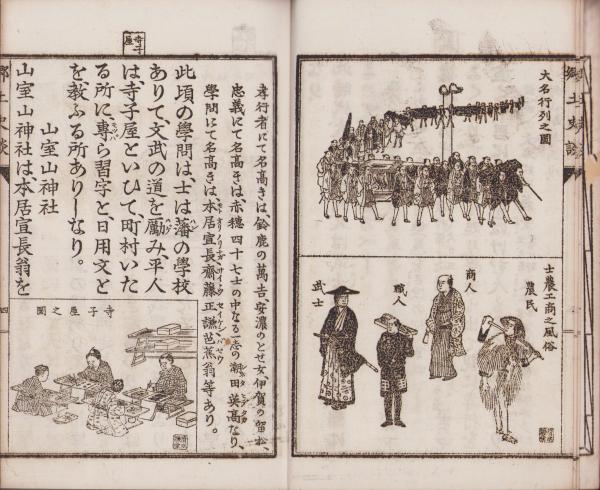 郷土史談
大名行列之圖
士農工商之風俗
農民
商人
職人
武士
孝行者にて名高きは、鈴鹿の萬吉、安濃のとせ女、伊賀の留松、
忠義にて名高きは、赤穗四十七士の中なる
潮田英高なり、
學問にて名高きは、本居宣長、齋藤正謙、芭蕉翁等あり。
寺子屋
此頃の學問は、士は藩の學校
ありて、文武の道を勵み、平人
は、寺子屋といひて、町村いた
る所に、專ら習字と、日用文と
を教ふる所ありしなり。
山室山神社
山室山神社は、本居宣長翁を
寺子屋之圖
郷土史談
四